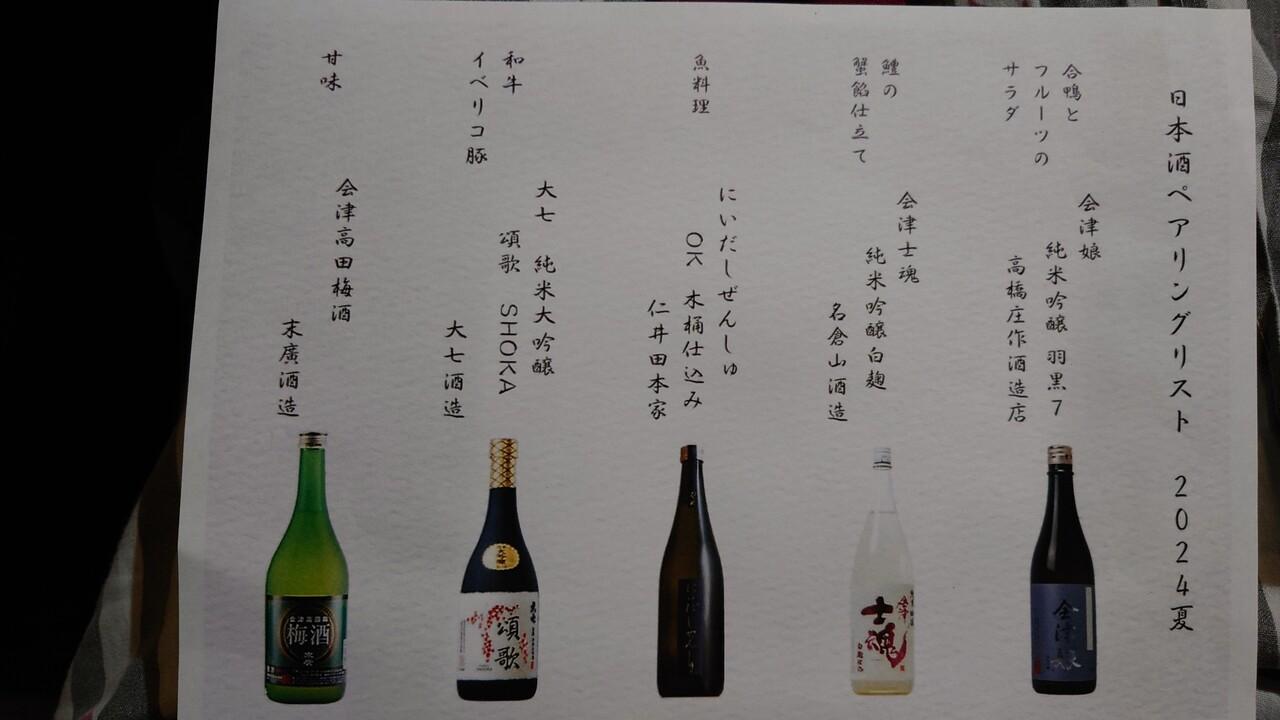 日本酒ペアリングリスト 2024夏
合鴨と
フルーツの
サラダ
会津娘
純米吟醸 羽黒7
高橋庄作酒造店
鱧の
蟹餡仕立て
会津士魂
純米吟醸白麹
名倉山酒造
魚料理
にいだしぜんしゅ
OK 木桶仕込み
仁井田本家
和牛
イベリコ豚
大七 純米大吟醸
頌歌 SHOKA
大七酒造
甘味
会津高田梅酒
末廣酒造
会津娘
士魂
頌歌
梅酒